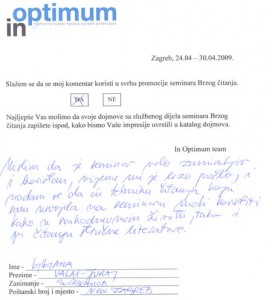 optimum
in
Zagreb, 24.04 – 30.04.2009.
Slažem se da se moj komentar koristi u svrhu promocije seminara Brzog čitanja.
DA NE
Najljepše Vas molimo da svoje dojmove sa službenog dijela seminara Brzog
čitanja zapišete ispod, kako bismo Vaše impresije uvrstili u katalog dojmova.
In Optimum team
Mislim da je seminar vrlo zanimljiv
i koristan, vrijeme mi je brzo prošlo i
nadam se da ću tehniku čitanja koju
sam usvojila na seminaru znati koristiti
kako u svakodnevnom životu, tako i
pri čitanju stručne literature.
Ime - LJILJANA
Prezime -
Zanimanje -
Poštanski broj i mjesto - ZAGREB